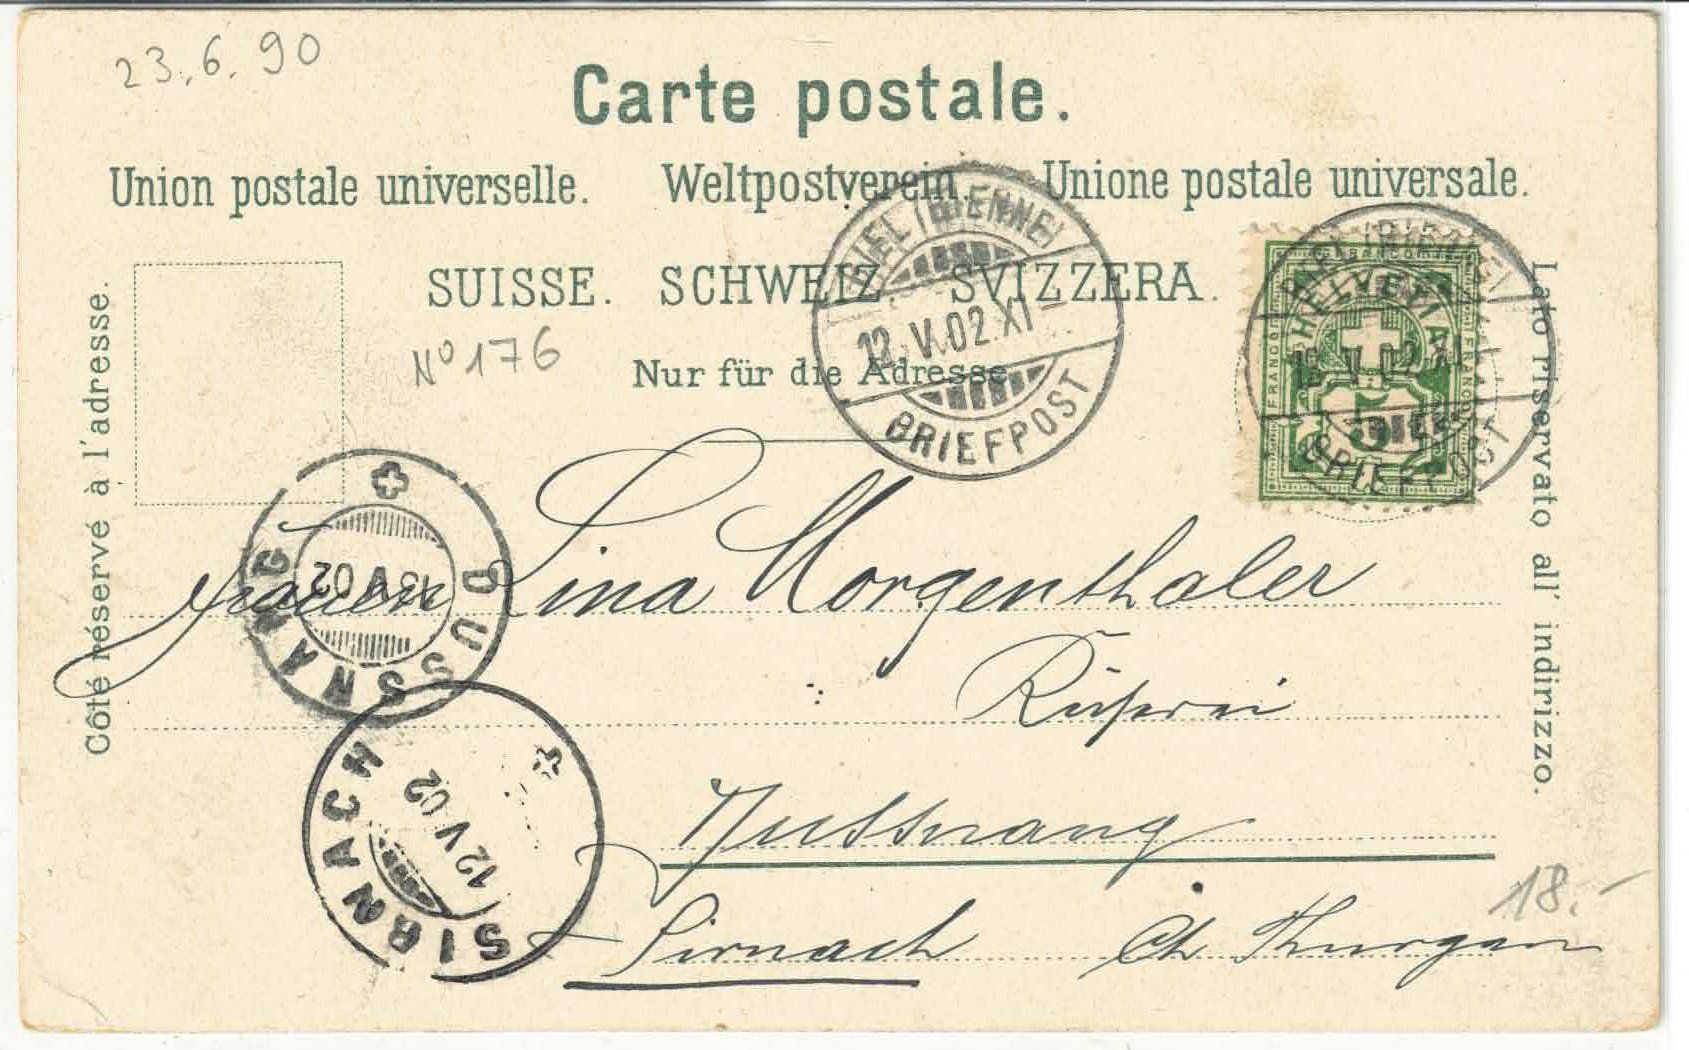 23.6.90
Carte postale.
Union postale universelle. Weltpostverein. Unione postale universale.
SUISSE. SCHWEIZ. SVIZZERA.
Nº 176
Nur für die Adresse
Côté réservé à l'adresse.
Lato riservato all' indirizzo.
BIEL (BIENNE)
12. V. 02. XI
BRIEFPOST
BIEL (BIENNE)
12. V. 02. XI
BRIEFPOST
FRANCO
HELVETIA
5
DUSSNANG
13 V 02
Lina Morgenthaler
Dussnang
SIRNACH
12 V 02
Sirnach Ct. Thurgau
18.-